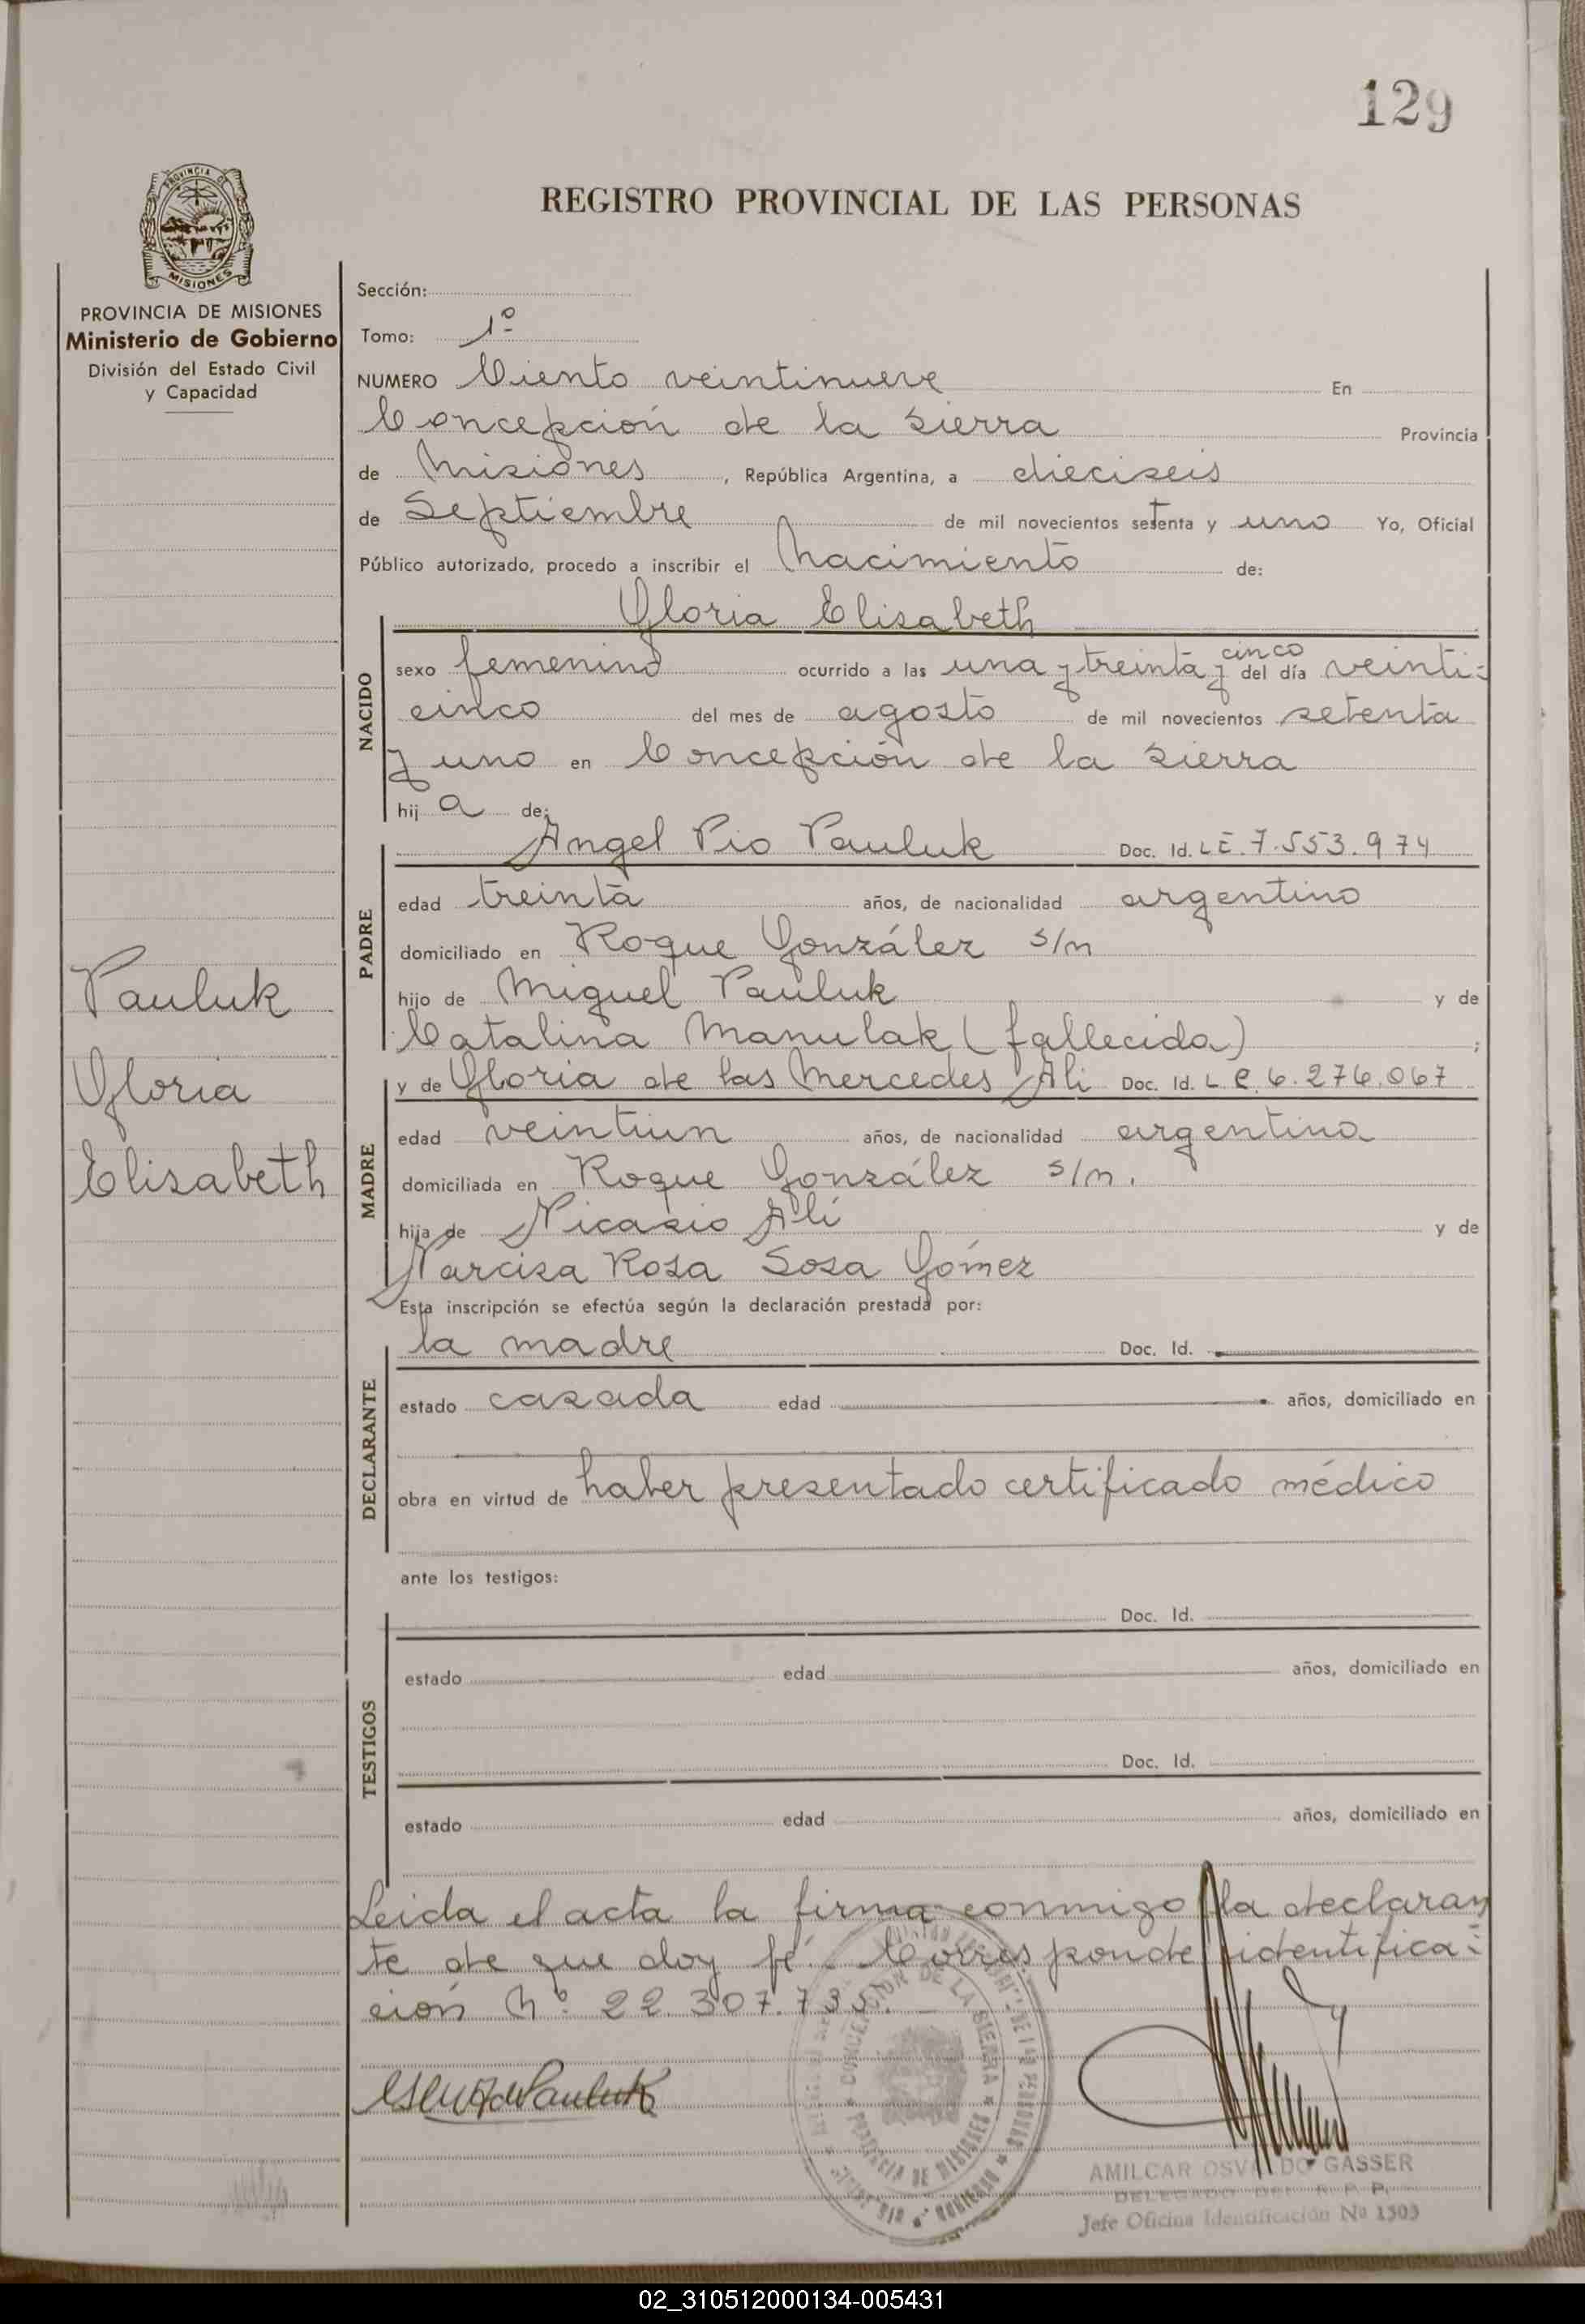 129
REGISTRO PROVINCIAL DE LAS PERSONAS
PROVINCIA DE MISIONES
PROVINCIA DE MISIONES
Ministerio de Gobierno
División del Estado Civil
y Capacidad
Sección:
Tomo: 1º
NUMERO Ciento veintinueve En
Concepción de la Sierra Provincia
de Misiones, República Argentina, a dieciseis
de Septiembre de mil novecientos setenta y uno Yo, Oficial
Público autorizado, procedo a inscribir el Nacimiento de:
Gloria Elisabeth
NACIDO
sexo femenino ocurrido a las una y treinta y cinco del día veinti-
cinco del mes de agosto de mil novecientos setenta
y uno en Concepción de la Sierra
hija de:
PADRE
Angel Pio Pauluk Doc. Id. LE. 7.553.974
edad treinta años, de nacionalidad argentino
domiciliado en Roque González s/n
hijo de Miguel Pauluk y de
Catalina Manulak (fallecida) ;
MADRE
y de Gloria de las Mercedes Ali Doc. Id. L C 6.276.067
edad veintiun años, de nacionalidad argentina
domiciliada en Roque González s/n.
hija de Nicasio Alí y de
Narcisa Rosa Sosa Gómez
Pauluk
Gloria
Elisabeth
Esta inscripción se efectúa según la declaración prestada por:
DECLARANTE
la madre Doc. Id.
estado casada edad años, domiciliado en
obra en virtud de haber presentado certificado médico
ante los testigos:
TESTIGOS
Doc. Id.
estado edad años, domiciliado en
Doc. Id.
estado edad años, domiciliado en
Leida el acta la firma conmigo la declaran
te de que doy fé. Corresponde identifica-
ción Nº 22.307.735.
de Pauluk
CONCEPCION DE LA SIERRA
PROVINCIA DE MISIONES
AMILCAR OSVALDO GASSER
DELEGADO DEL R. P. P.
Jefe Oficina Identificación Nº 1303
02_310512000134-005431